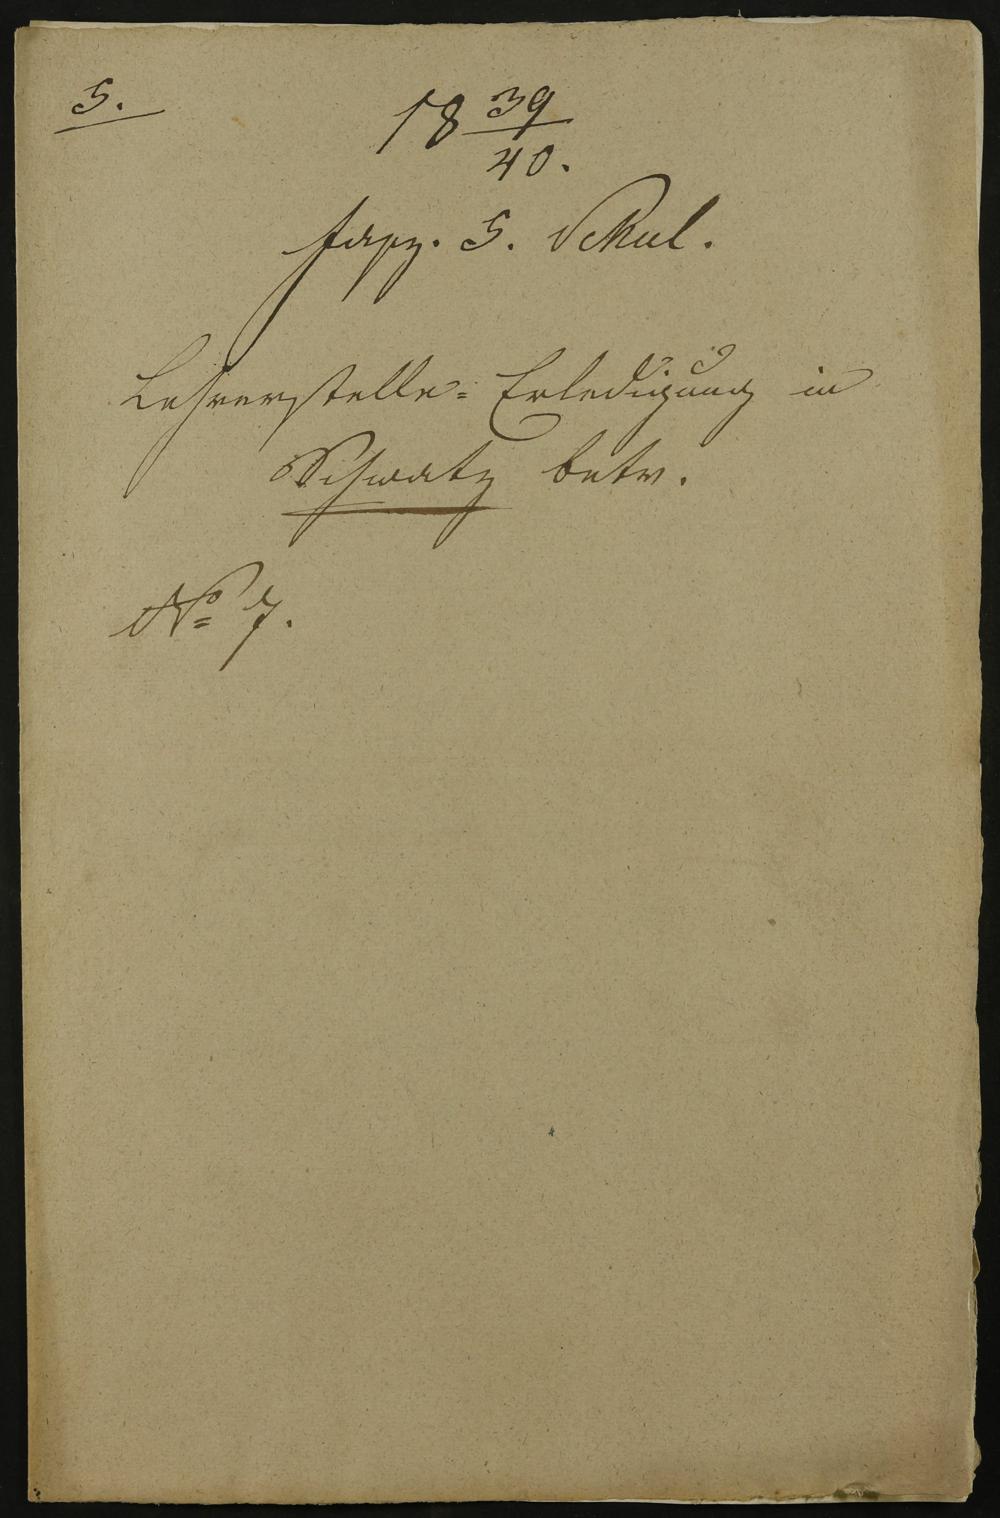 5.
18 39/40.
Fasz. 5. Schul.
Lehrerstelle=Erledigung in
Schwatz betr.
No 7.